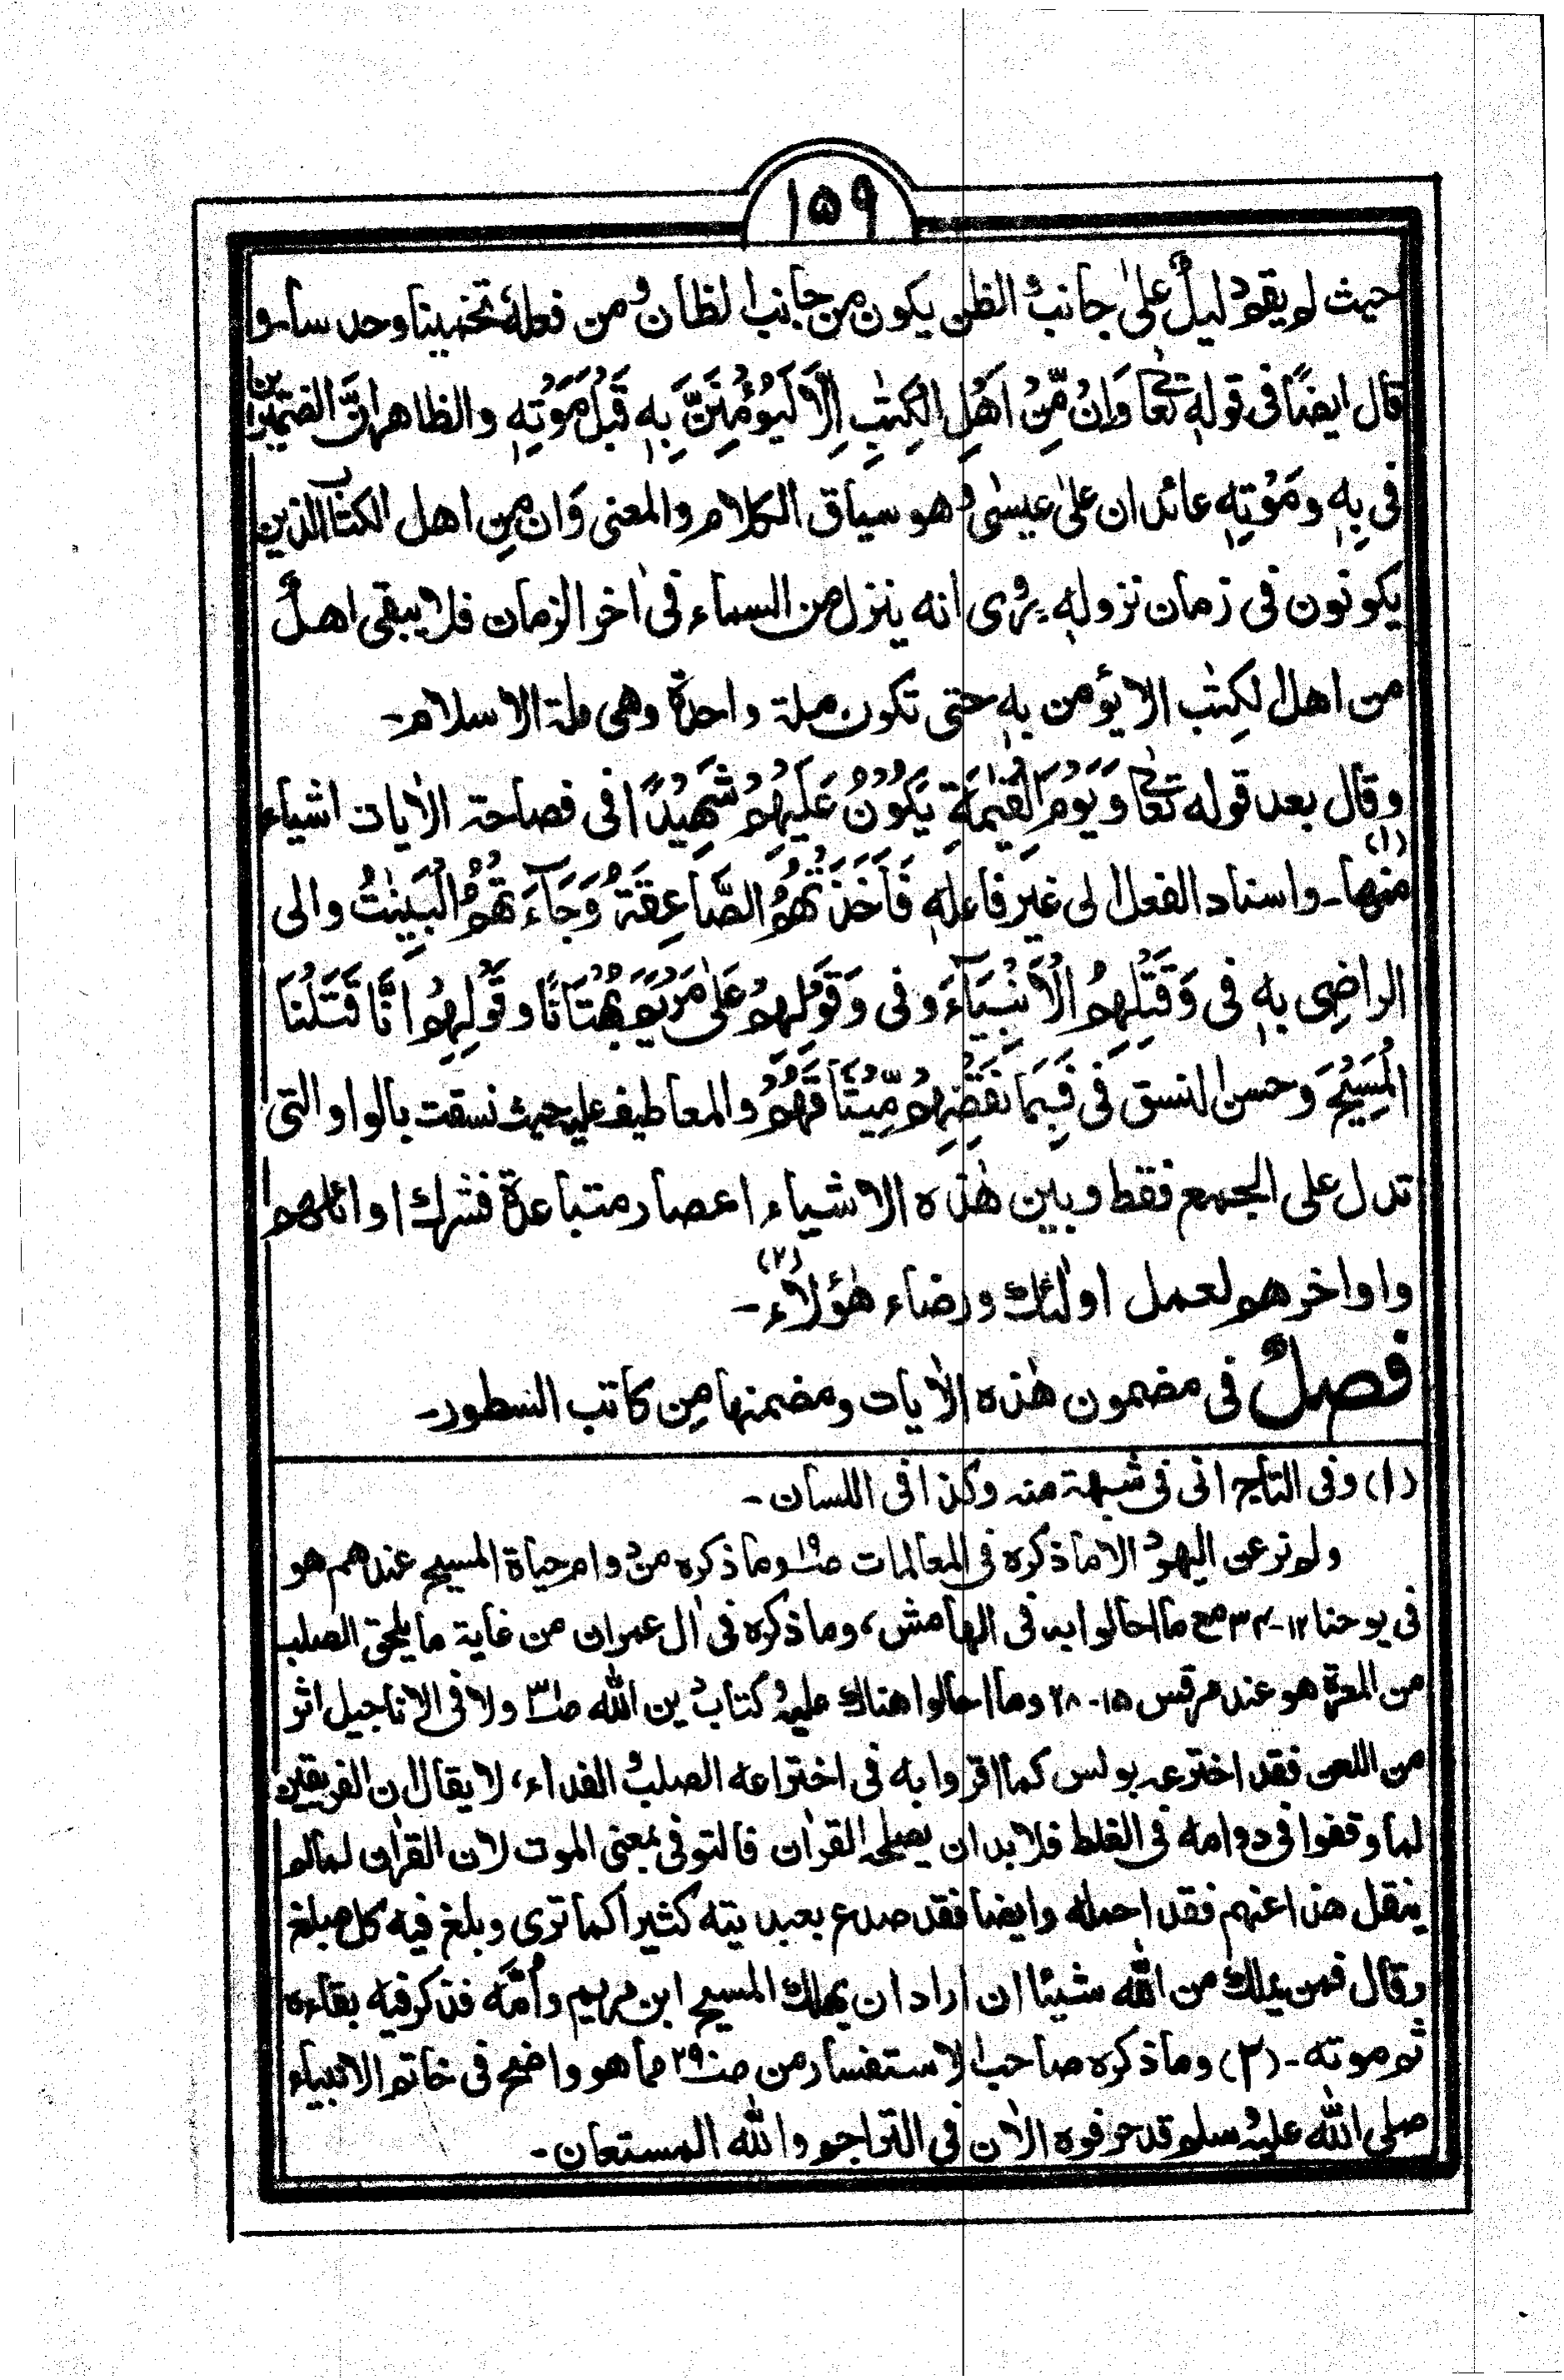 ۱۵۹
حيث لم يقم دليلٌ علىٰ جانب والظن يكون من جانب الظان ومن فعله تخمينا وحدسا۔ و
قال ايضًا فى قولهٖ تعالٰى وَاِنْ مِّنْ اَهْلِ الْكِتٰبِ اِلَّا لَيُؤْمِنَنَّ بِهٖ قَبْلَ مَوْتِهٖ والظاهر انَّ الضميرين
فى بِهٖ ومَوْتِهٖ عائدان علىٰ عيسىٰ وهو سياق الكلام والمعنى وَان مِن اهل الكتاب الذين
يكونون فى زمان نزولهٖ يروى انه ينزل من السماء فى اٰخر الزمان فلا يبقى اهلٌ
من اهل الكِتٰب الا يؤمن بهٖ حتى تكون ملة واحدةً وهى ملة الاسلام۔
وقال بعد قوله تعالٰى وَيَوْمَ الْقِيٰمَةِ يَكُوْنُ عَلَيْهِمْ شَهِيْدًا فى فصاحة الاٰيات اشياء
(۱)
منها۔ واسناد الفعل الى غير فاعلهٖ فَاَخَذَتْهُمُ الصَّاعِقَةُ وَجَآءَتْهُمُ الْبَيِّنٰتُ والى
الراضِى بهٖ فى وَقَتْلِهِمُ الْاَنْبِيَآءَ وفى وَقَوْلِهِمْ عَلٰى مَرْيَمَ بُهْتَانًا وقَوْلِهِمْ اِنَّا قَتَلْنَا
الْمَسِيْحَ وحسن النسق فى فَبِمَا نَقْضِهِمْ مِّيْثَاقَهُمْ والمعاطيف عليه حيث نسقت بالواو التى
تدل على الجمع فقط وبين هٰذه الاشياء اعصار متباعدة فشرك اوائلهم
واواخرهم لعمل اولٰئك ورضاء هٰؤلاء۔ (۲)
فصلٌ فى مضمون هٰذه الاٰيات ومضمنها مِن كاتب السطور۔
(۱) وفى التاج انى فى شبهة منه وكذا فى اللسان۔
ولم نر عن اليهود الا ما ذكره فى المعالمات وما ذكره من دوام حياة المسيح عندهم هو
فى يوحنا ۱۲-۳۴ مع ما احالوا به فى الهامش، وما ذكره فى اٰل عمران من غاية ما يلحق الصلب
من المعرة هو عند مرقس ۱۵-۲۸ وما احالوا هناك عليه و كتاب دين الله ولا فى الاناجيل اثر
من اللعن فقد اخترعه بولس كما اقروا به فى اختراعه الصلب والفداء، لا يقال ان الفريقين
لما وقفوا فى دوامه فى الغلط فلا بد ان يصلحه القراٰن فالتوفى بمعنى الموت لان القراٰن لما لم
ينقل هذا عنهم فقد احمله وايضا فقد صدع بعبديته كثيرا كما ترى وبلغ فيه كل مبلغ
وقال فمن يملك من الله شيئا ان اراد ان يهلك المسيح ابن مريم وأمّه فذكر فيه بقاءه
ثم موته۔ (۲) وما ذكره صاحب الاستفسار من صـ۲۹ مما هو واضح فى خاتم الانبياء
صلى الله عليه وسلم قد حرفوه الاٰن فى التراجم والله المستعان۔